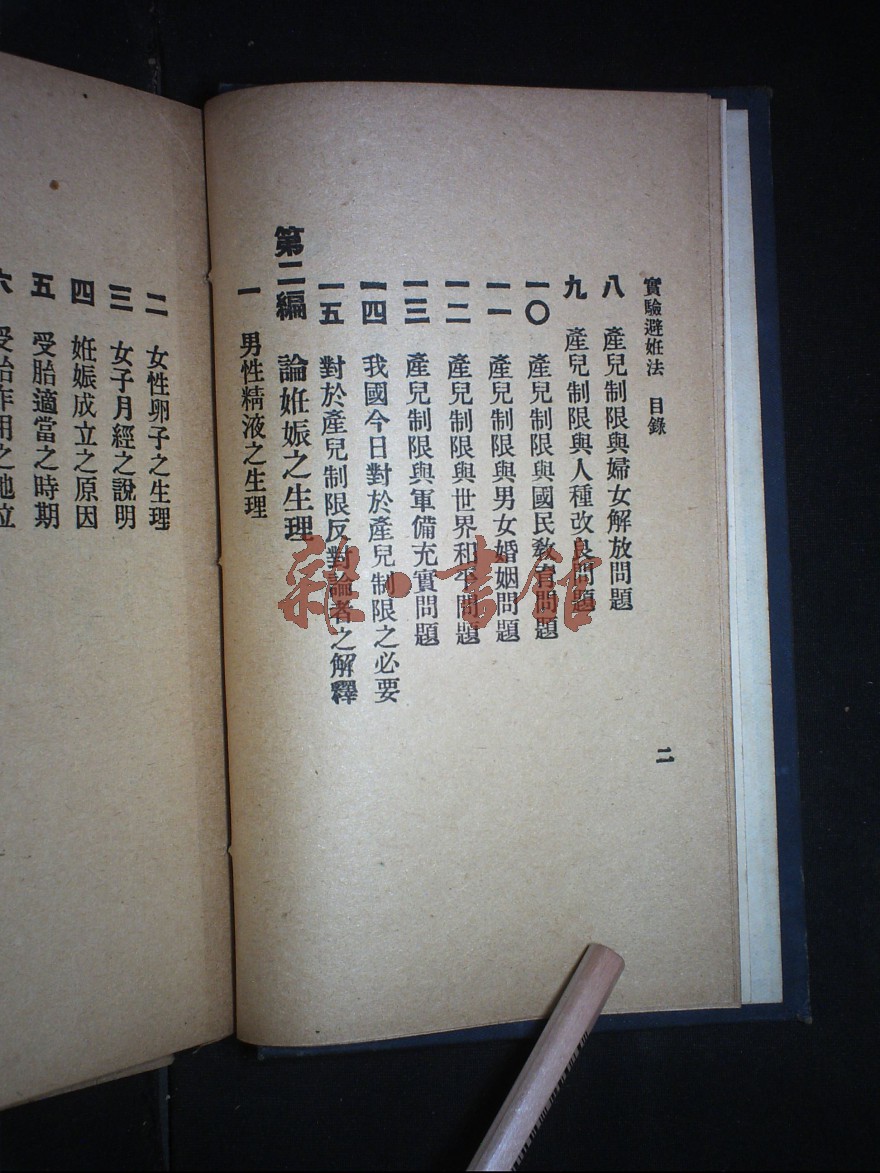 實驗避妊法 目錄
八 產兒制限與婦女解放問題
九 產兒制限與人種改良問題
一〇 產兒制限與國民敎育問題
一一 產兒制限與男女婚姻問題
一二 產兒制限與世界和平問題
一三 產兒制限與軍備充實問題
一四 我國今日對於產兒制限之必要
一五 對於產兒制限反對論者之解釋
第二編 論妊娠之生理
一 男性精液之生理
二
二 女性卵子之生理
三 女子月經之說明
四 妊娠成立之原因
五 受胎適當之時期
六 受胎作用之地位
雜·書館